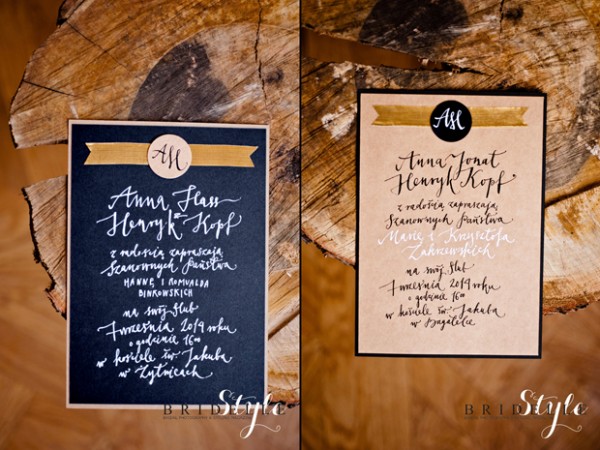 AH
Anna Hass
Henryk Kopf
z radością zapraszają
Szanownych Państwa
HANNĘ I ROMUALDA
BINKOWSKICH
na swój ślub
7 września 2019 roku
o godzinie 16⁰⁰
w kościele św. Jakuba
w Żytnicach
BRIDELLE
Style
AH
Anna Jonat
Henryk Kopf
z radością zapraszają
Szanownych Państwa
Marię i Krzysztofa
Zakrzewskich
na swój ślub
7 września 2019 roku
o godzinie 16⁰⁰
w kościele św. Jakuba
w
BRIDELLE
Style